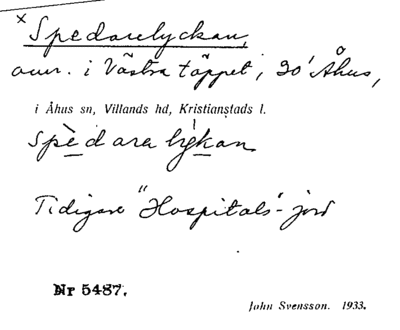 × Spedarelyckan,
i Västra täppet, 20' Åhus,
i Åhus sn, Villands hd, Kristianstads l.
spèdara lýkan
Tidigare "Hospitals"-jord
Nr 5487.
John Svensson. 1933.